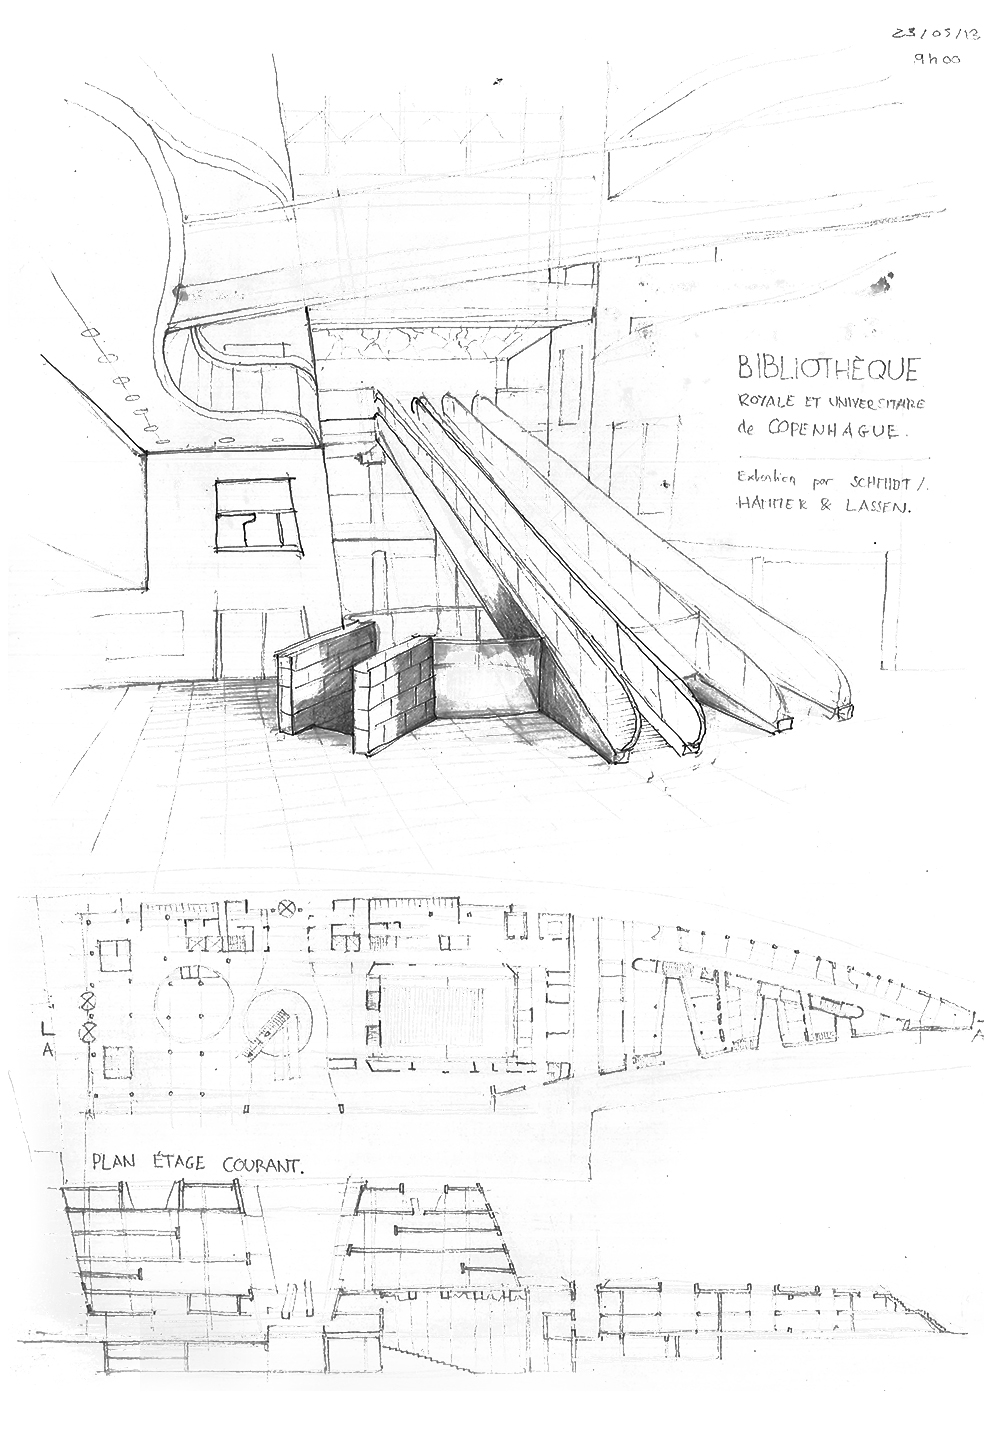 23/05/13
9h00
BIBLIOTHÈQUE
ROYALE ET UNIVERSITAIRE
de COPENHAGUE.
Extention par SCHMIDT /.
HAMMER & LASSEN.
A
A
PLAN ÉTAGE COURANT.